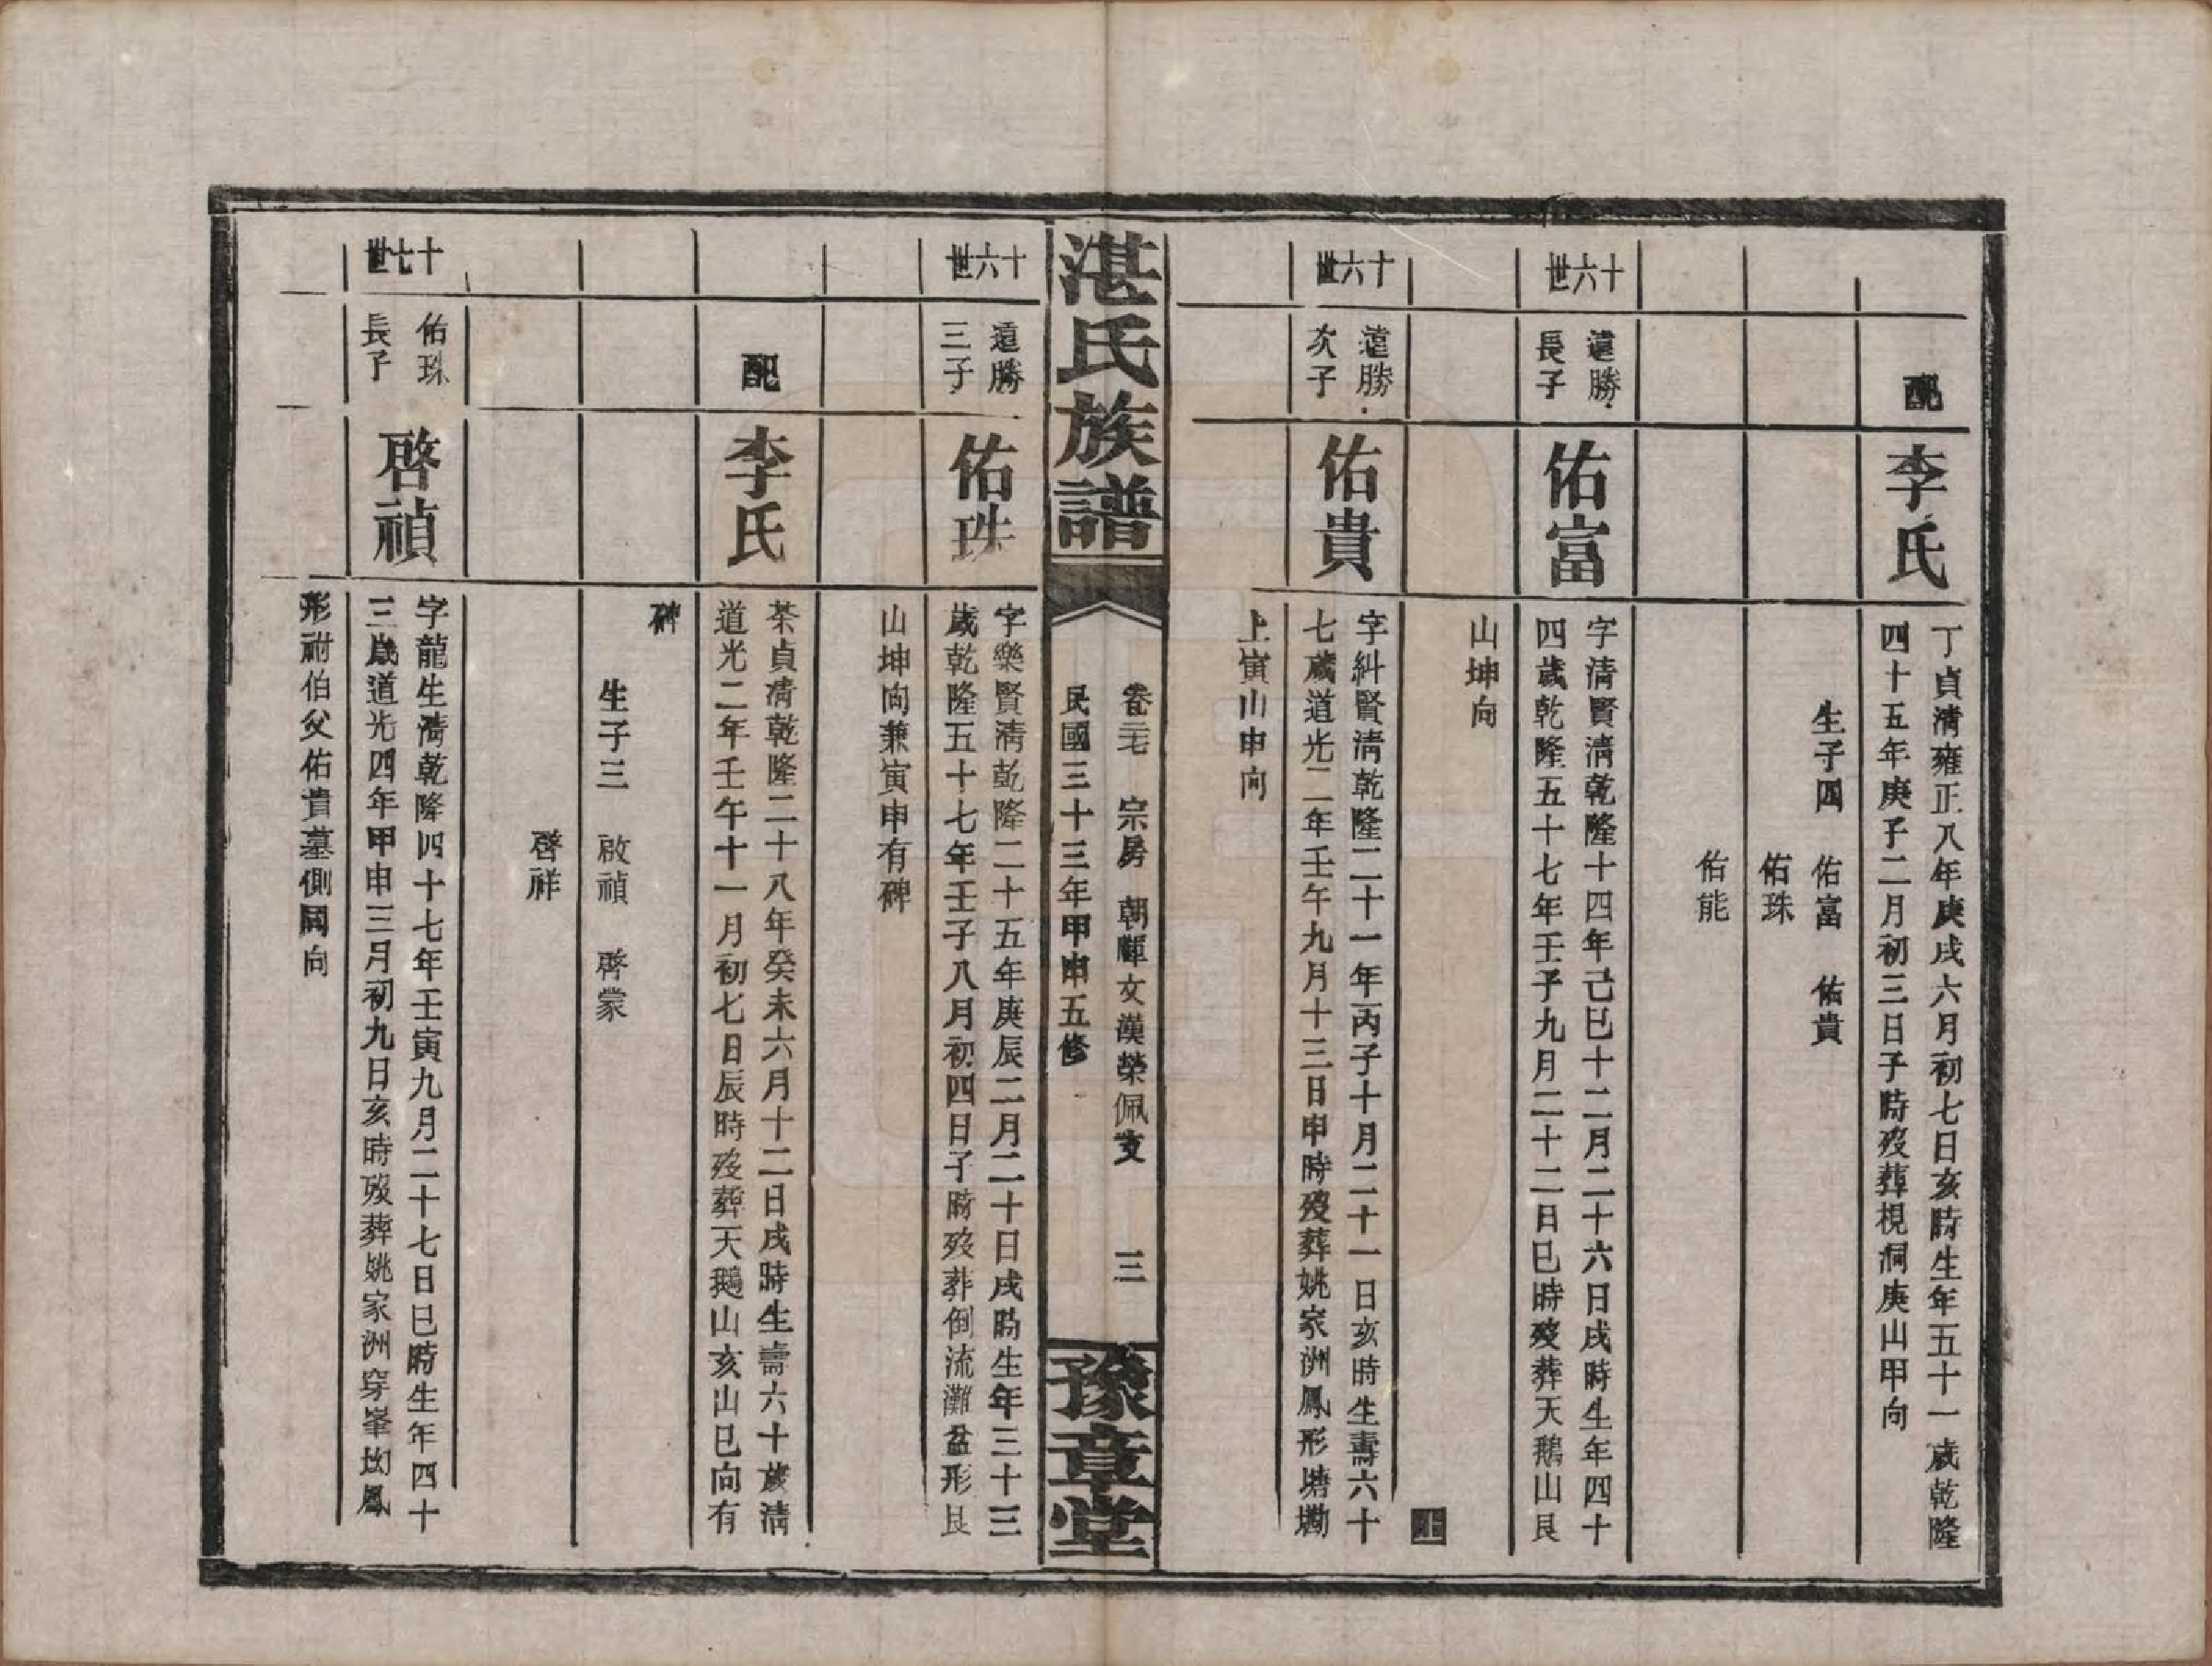 配
李氏
丁貞清雍正八年庚戌六月初七日亥時生年五十一歲乾隆
四十五年庚子二月初三日子時歿葬梘洞庚山甲向
生子四 佑富 佑貴
佑珠
佑能
十六世
遠勝
長子
佑富
字清賢清乾隆十四年己巳十二月二十六日戌時生年四十
四歲乾隆五十七年壬子九月二十二日巳時歿葬天鵝山艮
山坤向
止
十六世
遠勝
次子
佑貴
字糾賢清乾隆二十一年丙子十月二十一日亥時生壽六十
七歲道光二年壬午九月十三日申時歿葬姚家洲鳳形塘墈
上寅山申向
湛氏族譜
卷三七 宗房 朝暉文漢榮佩支 三
民國三十三年甲申五修
豫章堂
十六世
遠勝
三子
佑珠
字樂賢清乾隆二十五年庚辰二月二十日戌時生年三十三
歲乾隆五十七年壬子八月初四日子時歿葬倒流灘盆形艮
山坤向兼寅申有碑
配
李氏
茶貞清乾隆二十八年癸未六月十二日戌時生壽六十歲清
道光二年壬午十一月初七日辰時歿葬天鵝山亥山巳向有
碑
生子三 啟禎 啓蒙
啓祥
十七世
佑珠
長子
啓禎
字龍生清乾隆四十七年壬寅九月二十七日巳時生年四十
三歲道光四年甲申三月初九日亥時歿葬姚家洲穿峯坳鳳
形祔伯父佑貴墓側同向